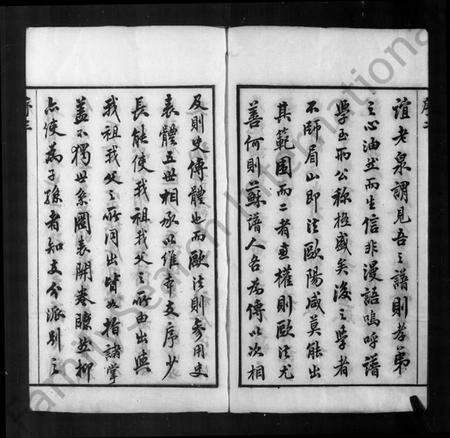 誼老泉謂見吾之譜則孝弟
之心油然而生信非漫語嗚呼譜
學至而公稱極盛矣後之學者
不師眉山即法歐陽咸莫能出
其範圍而二者並權則歐法尤
善何則蘇譜人各為傳以次相
及則史傳體也而歐法則參用史
表體五世相承以維本支序少
長能使我祖我父之所由出與
我祖我父之所同出皆如指諸掌
蓋不獨世系圖表開卷瞭然抑
亦使為子孫者知支分派別之
FamilySearch International